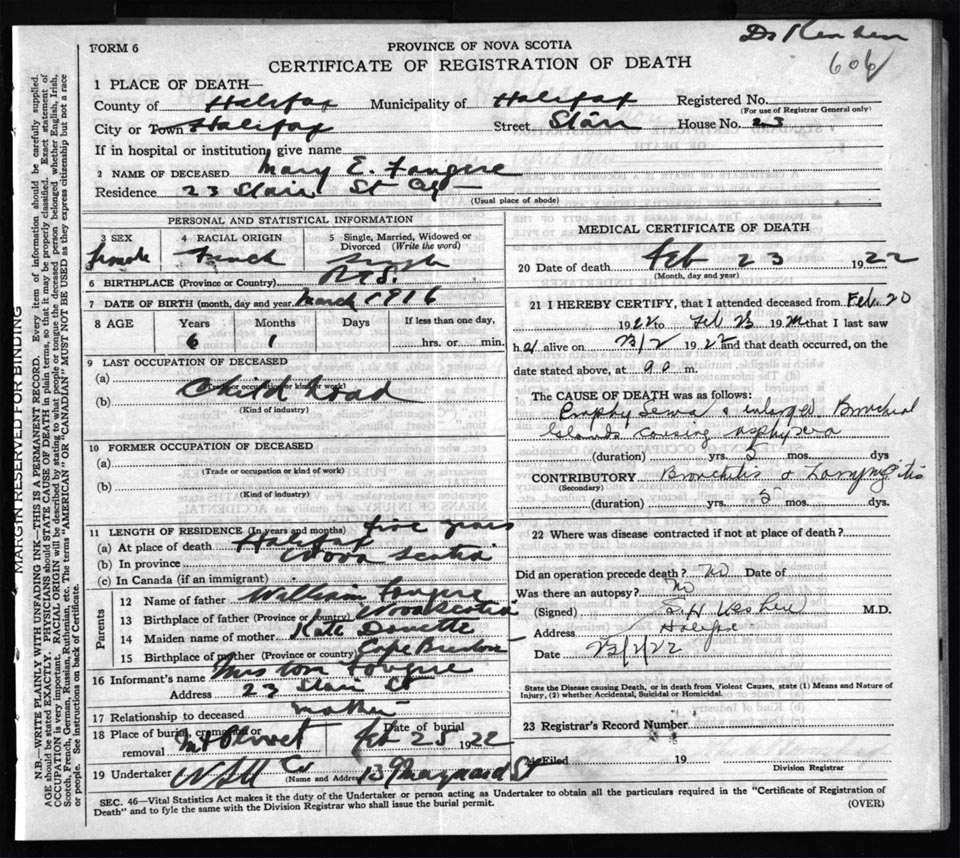 FORM 6
606
PROVINCE OF NOVA SCOTIA
CERTIFICATE OF REGISTRATION OF DEATH
1 PLACE OF DEATH—
County of Halifax Municipality of Halifax Registered No.
(For use of Registrar General only)
City or Town Halifax Street Stairs House No. 23
If in hospital or institution, give name
2 NAME OF DECEASED Mary E. Fougere
Residence 23 Stairs St City
(Usual place of abode)
PERSONAL AND STATISTICAL INFORMATION
3 SEX 4 RACIAL ORIGIN 5 Single, Married, Widowed or Divorced (Write the word)
female French Single
6 BIRTHPLACE (Province or Country) N.S.
7 DATE OF BIRTH (month, day and year) March 1916
8 AGE Years Months Days If less than one day,
6 1 hrs. or min.
9 LAST OCCUPATION OF DECEASED
(a)
(Trade or occupation or kind of work)
(b) Childhood
(Kind of industry)
10 FORMER OCCUPATION OF DECEASED
(a)
(Trade or occupation or kind of work)
(b)
(Kind of industry)
11 LENGTH OF RESIDENCE (In years and months) five years
(a) At place of death Halifax
(b) In province Nova Scotia
(c) In Canada (if an immigrant)
Parents
12 Name of father William Fougere
13 Birthplace of father (Province or country) Nova Scotia
14 Maiden name of mother Kate
15 Birthplace of mother (Province or country) Cape Breton
16 Informant's name Mrs Fougere
Address 23 Stairs St
17 Relationship to deceased mother
18 Place of burial, cremation or removal Mt Olivet Date of burial Feb 25 1922
19 Undertaker N S U Co (Name and Address) 139 Maynard St
MEDICAL CERTIFICATE OF DEATH
20 Date of death Feb 23 1922
(Month, day and year)
21 I HEREBY CERTIFY, that I attended deceased from Feb. 20
1922 to Feb 23 1922 that I last saw
h alive on 23/2 1922 and that death occurred, on the
date stated above, at 9 a. m.
The CAUSE OF DEATH was as follows:
Emphysema & enlarged Bronchial
Glands causing asphyxia
(duration) yrs. 5 mos. dys
CONTRIBUTORY Bronchitis & Laryngitis
(Secondary)
(duration) yrs. 5 mos. dys.
22 Where was disease contracted if not at place of death?
Did an operation precede death? NO Date of
Was there an autopsy? No
(Signed) M.D.
Address Halifax
Date 23/2/22
State the Disease causing Death, or in death from Violent Causes, state (1) Means and Nature of Injury, (2) whether Accidental, Suicidal or Homicidal.
23 Registrar's Record Number
24 Filed 19
Division Registrar
SEC. 46—Vital Statistics Act makes it the duty of the Undertaker or person acting as Undertaker to obtain all the particulars required in the "Certificate of Registration of
Death" and to fyle the same with the Division Registrar who shall issue the burial permit. (OVER)
MARGIN RESERVED FOR BINDING
N.B.—WRITE PLAINLY WITH UNFADING INK—THIS IS A PERMANENT RECORD. Every item of information should be carefully supplied.
AGE should be stated EXACTLY. PHYSICIANS should STATE CAUSE OF DEATH in plain terms, so that it may be properly classified. Exact statement of
OCCUPATION is very important. RACIAL ORIGIN will be described by stating to what people or tongue the deceased person belonged, whether English, Irish,
Scotch, French, German, Russian, Ruthenian, etc. The terms "AMERICAN" OR "CANADIAN" MUST NOT BE USED as they express citizenship but not a race
or people. See instructions on back of Certificate.